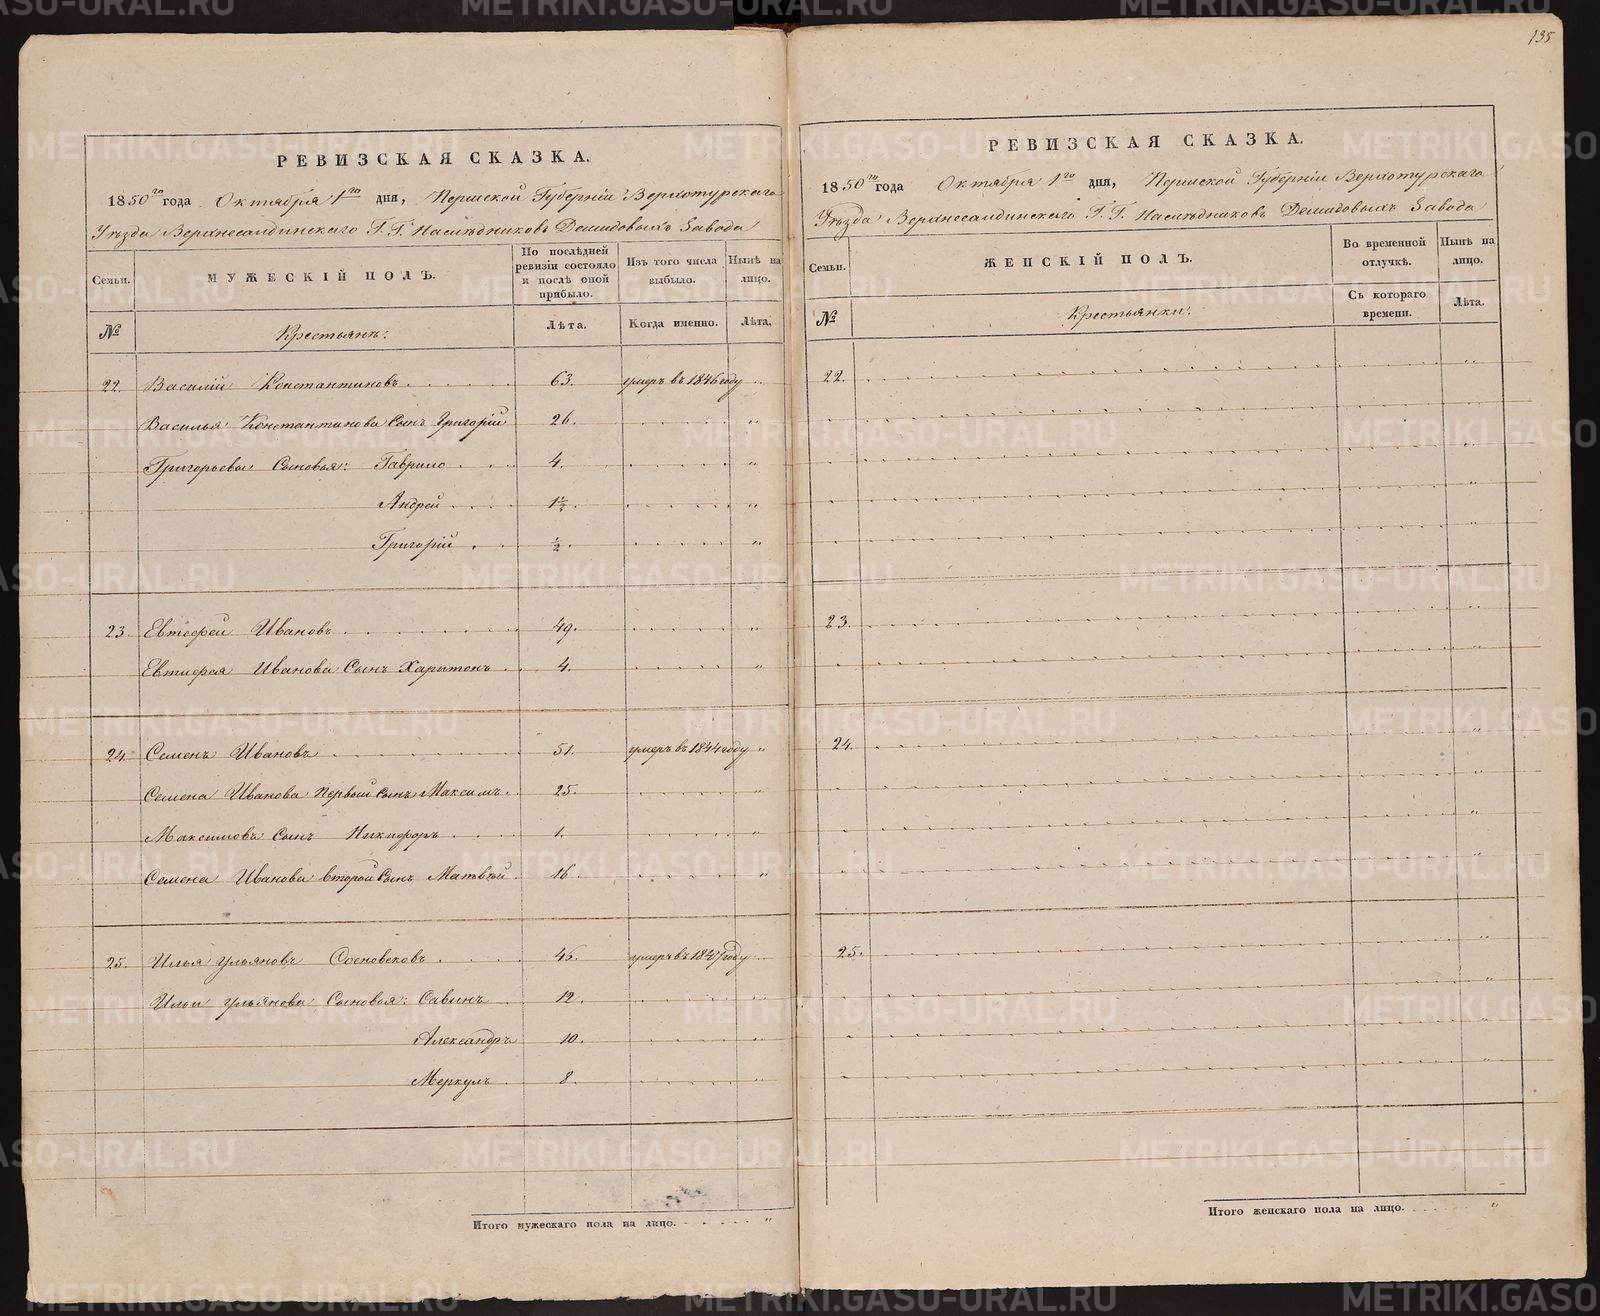 135
РЕВИЗСКАЯ СКАЗКА.
1850го года Октября 1го дня, Пермской Губерніи Верхотурскаго
Уѣзда Верхнесалдинскаго Г.Г. Наслѣдниковъ Демидовыхъ Завода
Семьи.
МУЖЕСКІЙ ПОЛЪ.
По послѣдней ревизіи состояло и послѣ оной прибыло.
Изъ того числа выбыло.
Нынѣ на лицо.
№
Крестьянъ:
Лѣта.
Когда именно.
Лѣта.
22. Василій Константиновъ 63. умеръ въ 1846 году "
Василья Константинова Сынъ Григорій 26. "
Григорьевы Сыновья: Гаврило 4. "
Андрей 1½ "
Григорій ½. "
23. Евтефей Ивановъ 49. "
Евтифея Иванова Сынъ Харитонъ 4. "
24. Семенъ Ивановъ 51. умеръ въ 1844 году "
Семена Иванова Первой сынъ Максимъ 25. "
Максимовъ Сынъ Никифоръ 1. "
Семена Иванова второй Сынъ Матвѣй 16 "
25. Илья Ульяновъ Сосновсковъ 46. умеръ въ 1847 году "
Ильи Ульянова Сыновья: Савинъ 12. "
Александръ 10. "
Меркулъ 8. "
Итого мужескаго пола на лицо. "
РЕВИЗСКАЯ СКАЗКА.
1850го года Октября 1го дня, Пермской Губерніи Верхотурскаго
Уѣзда Верхнесалдинскаго Г.Г. Наслѣдниковъ Демидовыхъ Завода
Семьи.
ЖЕНСКІЙ ПОЛЪ.
Во временной отлучкѣ.
Нынѣ на лицо.
№
Крестьянки:
Съ котораго времени.
Лѣта.
22. "
23. "
24. "
25. "
Итого женскаго пола на лицо. "
METRIKI.GASO-URAL.RU